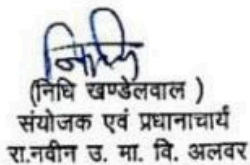 निधि
(निधि खण्डेलवाल )
संयोजक एवं प्रधानाचार्य
रा.नवीन उ. मा. वि. अलवर